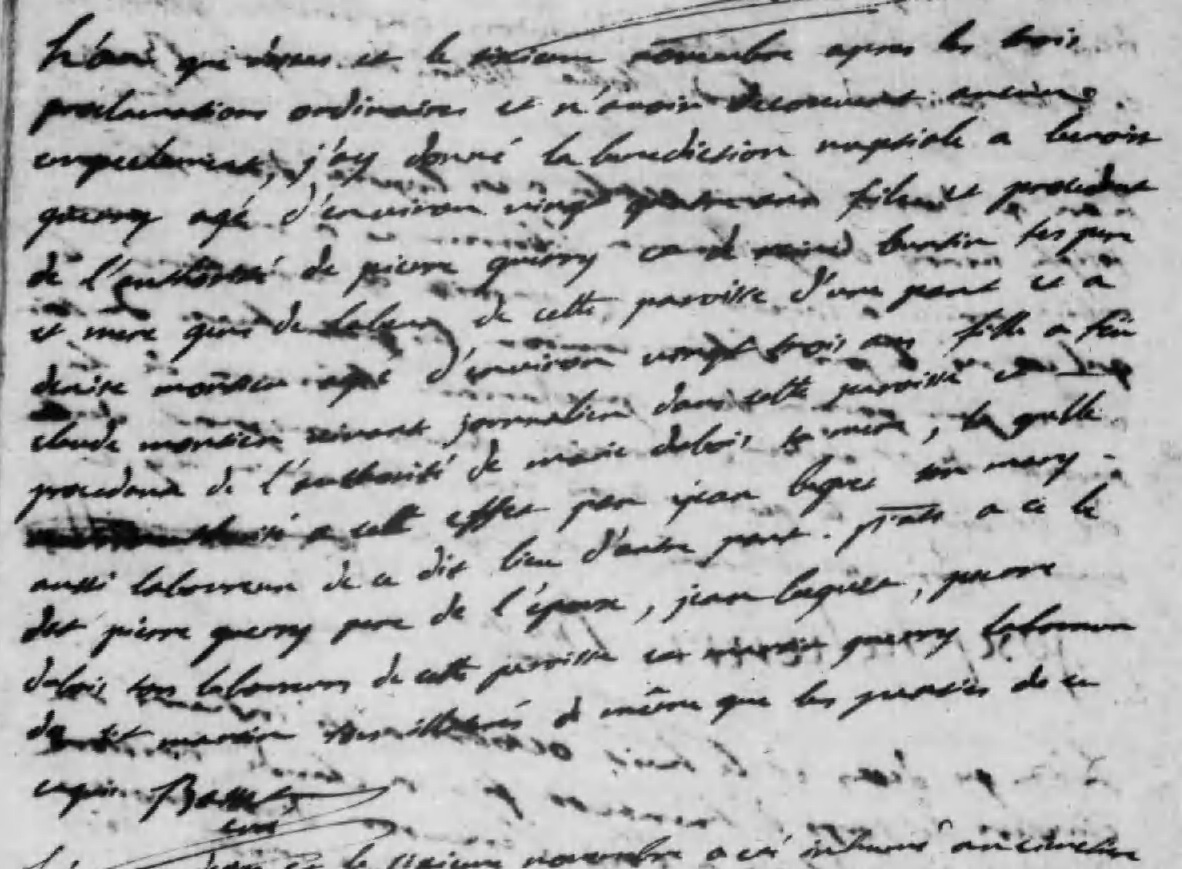 L'an que dessus et le sixieme novembre apres les trois
proclamations ordinaires et n'avoir decouvert aucune
empechement, j'ay donné la benediction nuptiale a benoit
querry agé d'environ vingt quatre ans fils et procedant
de l'authorité de pierre querry et de bertin ses pere
et mere gens de labeur de cette paroisse d'une part et a
denise agée d'environ vingt trois ans fille a feu
claude vivant journalier dans cette paroisse et
procedant de l'authorité de marie debois sa mere, la quelle
a cett effet par jean son mary
aussi laboureur de ce dit lieu d'autre part. pnts a ce le
dit pierre querry pere de l'epoux, jean pierre
debois tous laboureurs de cette paroisse et querry laboureur
de st martin illiterés de même que les parties de ce
requis.
curé
et le sixieme novembre a eté inhumé au cimetiere